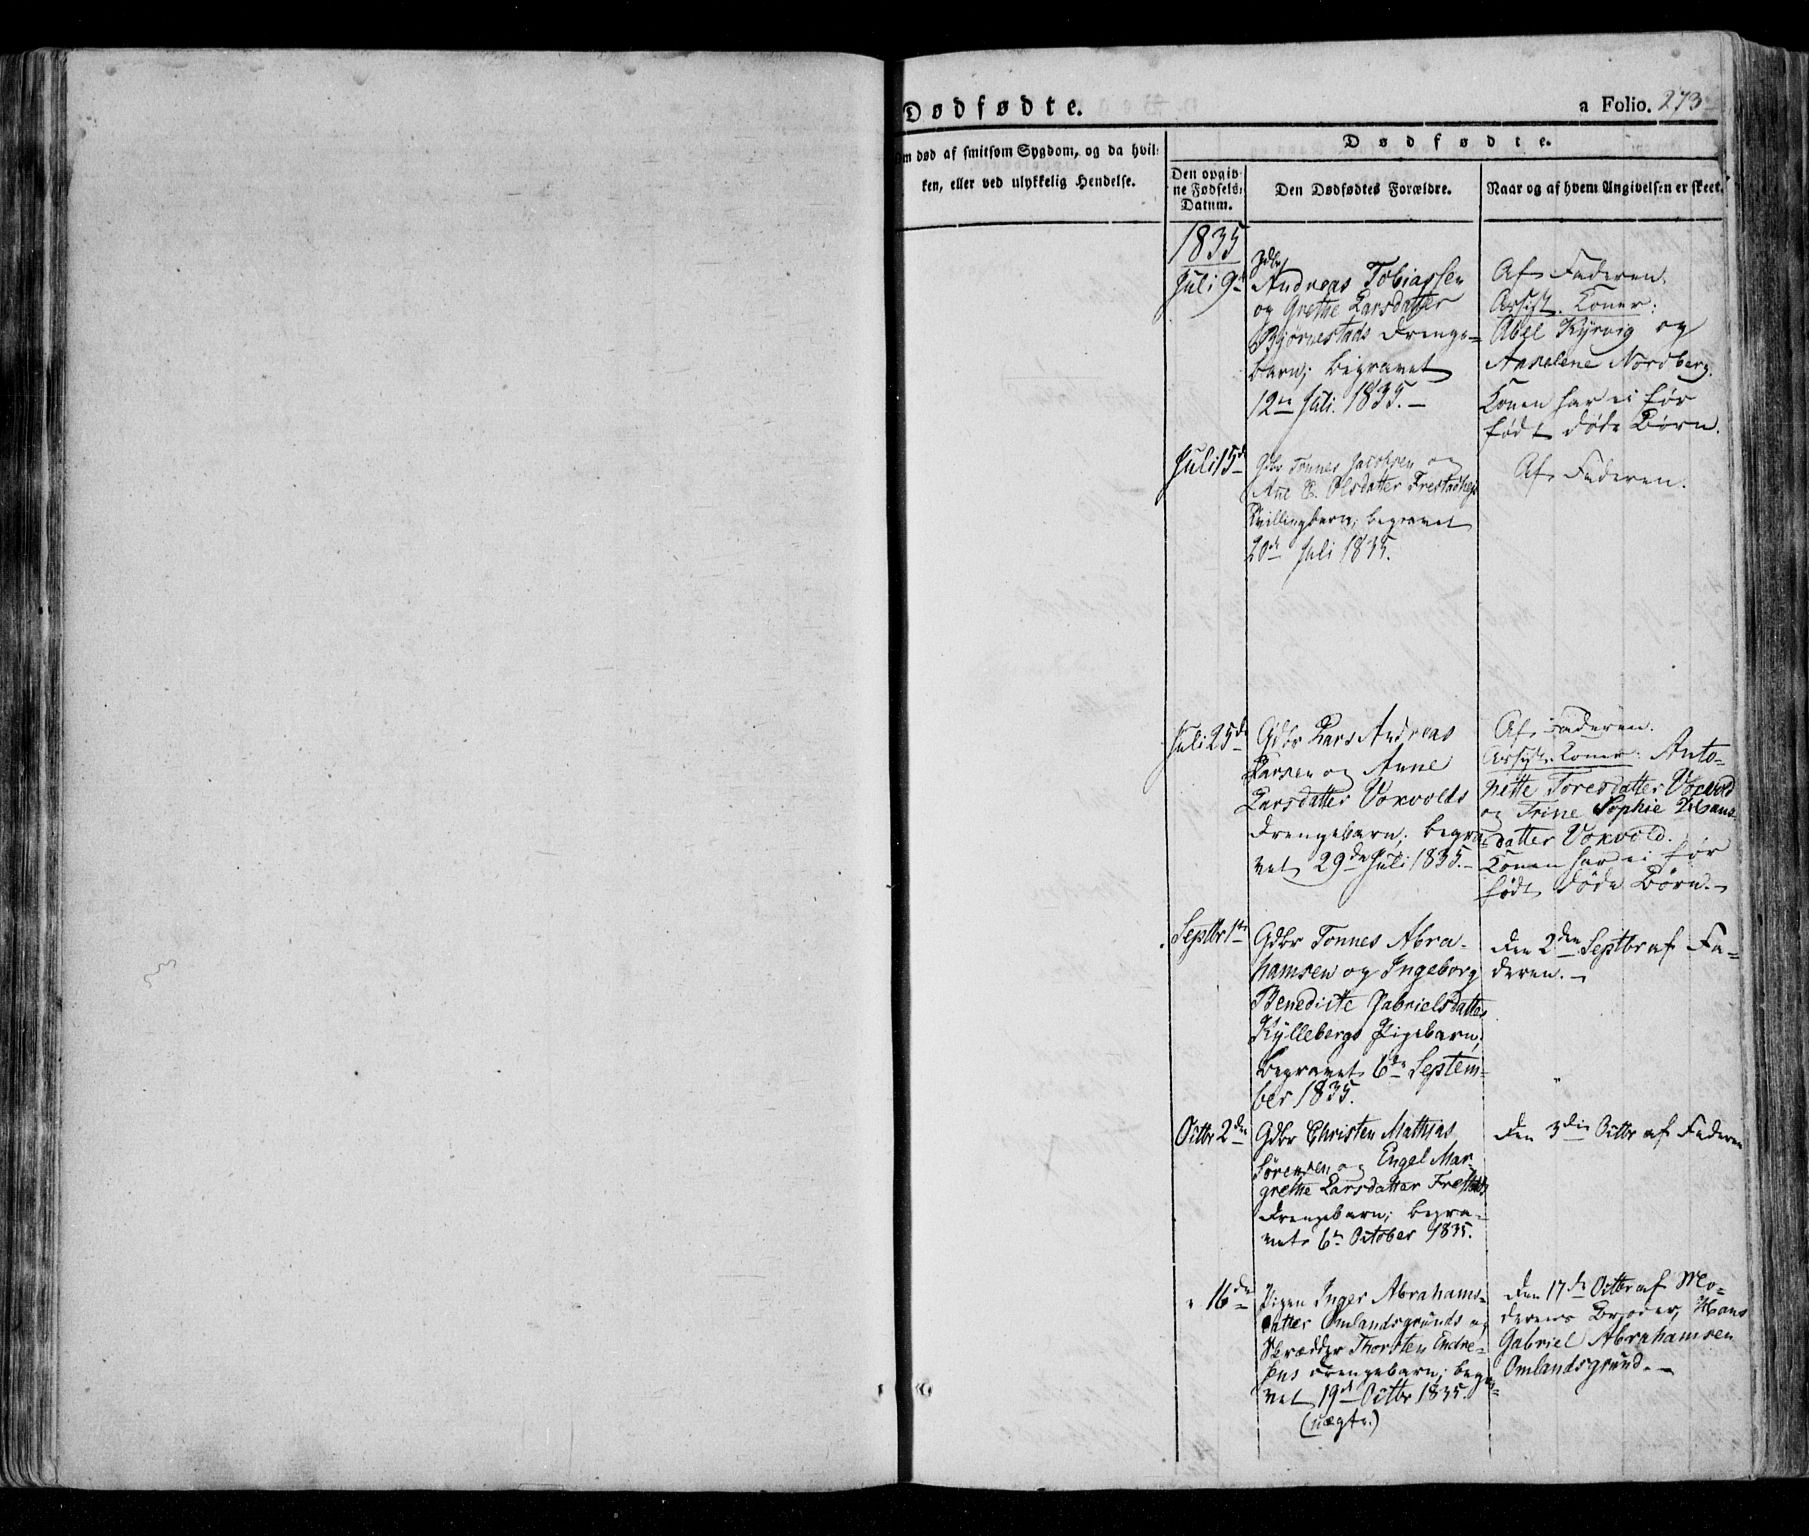 Dødfødte.
a Folio. 273
Om død af smitsom Sygdom, og da hvil-
ken, eller ved ulykkelig Hendelse.
Dødfødte.
Den opgiv-
ne Fødsels-
Datum.
Den Dødfødtes Forældre.
Naar og af hvem Angivelsen er skeet.
1835
Juli 9de
Gdbr
Andreas Tobiassen
og Grethe Larsdatter
Bjørnestads Drenge-
barn; begravet
12te Juli 1835.-
Af Faderen.
Assist. Koner:
Abel Kÿrvig og
Anselene Nordberg.
Konen har ei før
født døde Børn.
Juli 15de
Gdbr Tønnes Jacobsen og
Ane B. Olsdatter Frestadhejs
Tvillingbarn; begravet
20de Juli 1835.
Af Faderen.
Juli 25de
Gdbr Lars Andreas
Larsen og Anne
Larsdatter Voxvolds
Drengebarn; begra-
vet 29de Juli 1835.-
Af Faderen.
Assist. Koner: Anto-
nette Toresdatter Voxvold
og Trine Sophie Hans-
datter Voxvold.
Konen har ei før
født døde Børn.-
Septbr 1te
Gdbr Tønnes Abra-
hamsen og Ingeborg
Benedicte Gabrielsdatter
Kÿllebergs Pigebarn;
begravet 6te Septem-
ber 1835.
den 2den Septbr af Fa-
deren.-
Octbr 2den
Gdbr Christen Mathias
Sørensen og Engel Mar-
grethe Larsdatter Frestads
Drengebarn; begra-
vet 6te October 1835.
den 3die Octbr af Faderen
" 16de
Pigen Inger Abrahams-
datter Omlandsgrunds og
Skrædder Thorsten Endre-
sens Drengebarn; begra-
vet 19de Octbr 1835.
(uægte.)
den 17de Octbr af Mo-
derens Broder, Hans
Gabriel Abrahamsen
Omlandsgrund.-